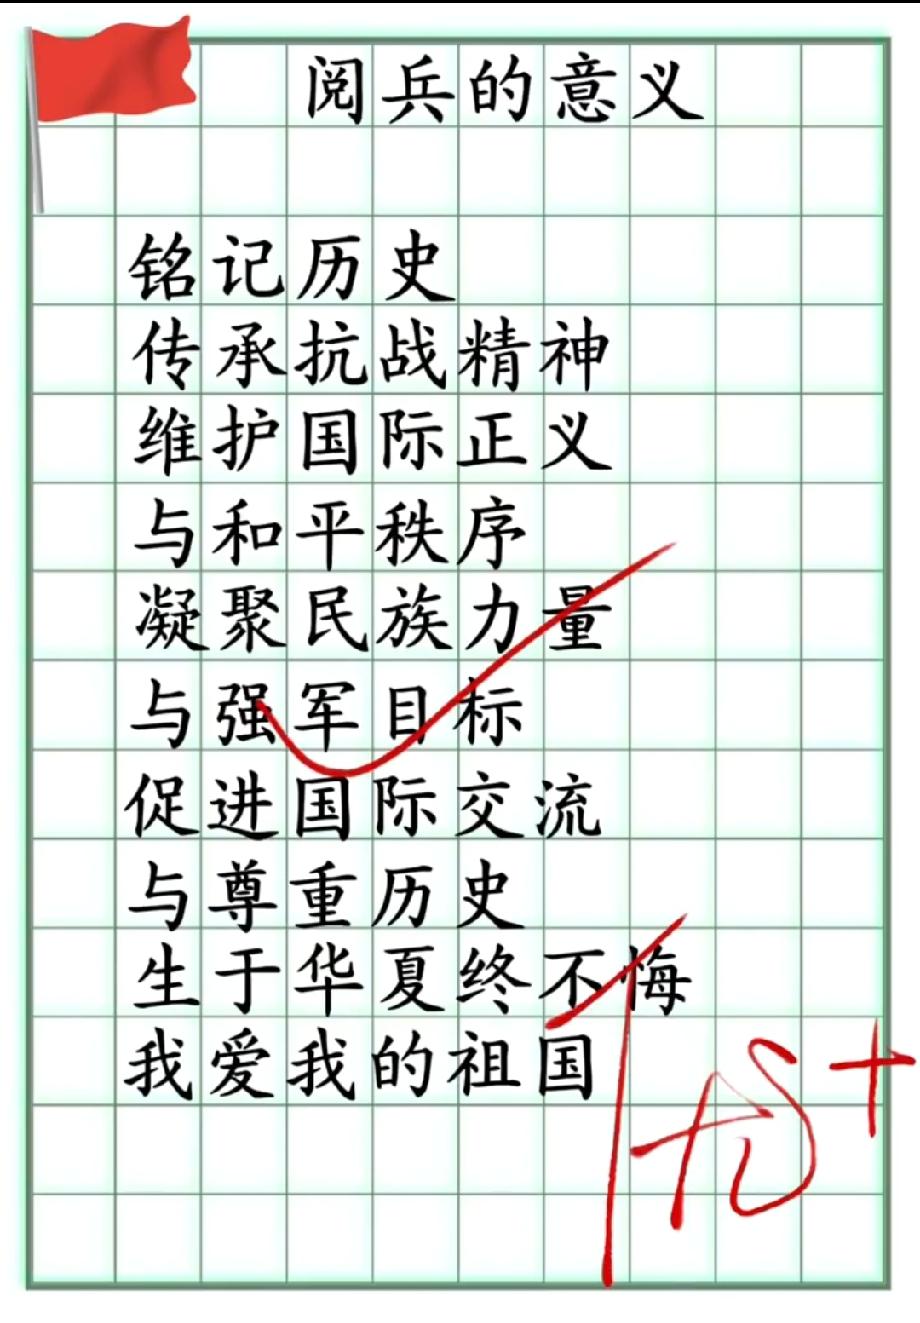 阅兵的意义
铭记历史
传承抗战精神
维护国际正义
与和平秩序
凝聚民族力量
与强军目标
促进国际交流
与尊重历史
生于华夏终不悔
我爱我的祖国
优+